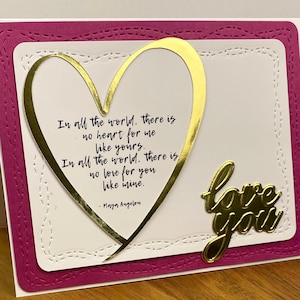 In all the world, there is
no heart for me
like yours.
In all the world, there is
no love for you
like mine.
- Maya Angelou
love
you